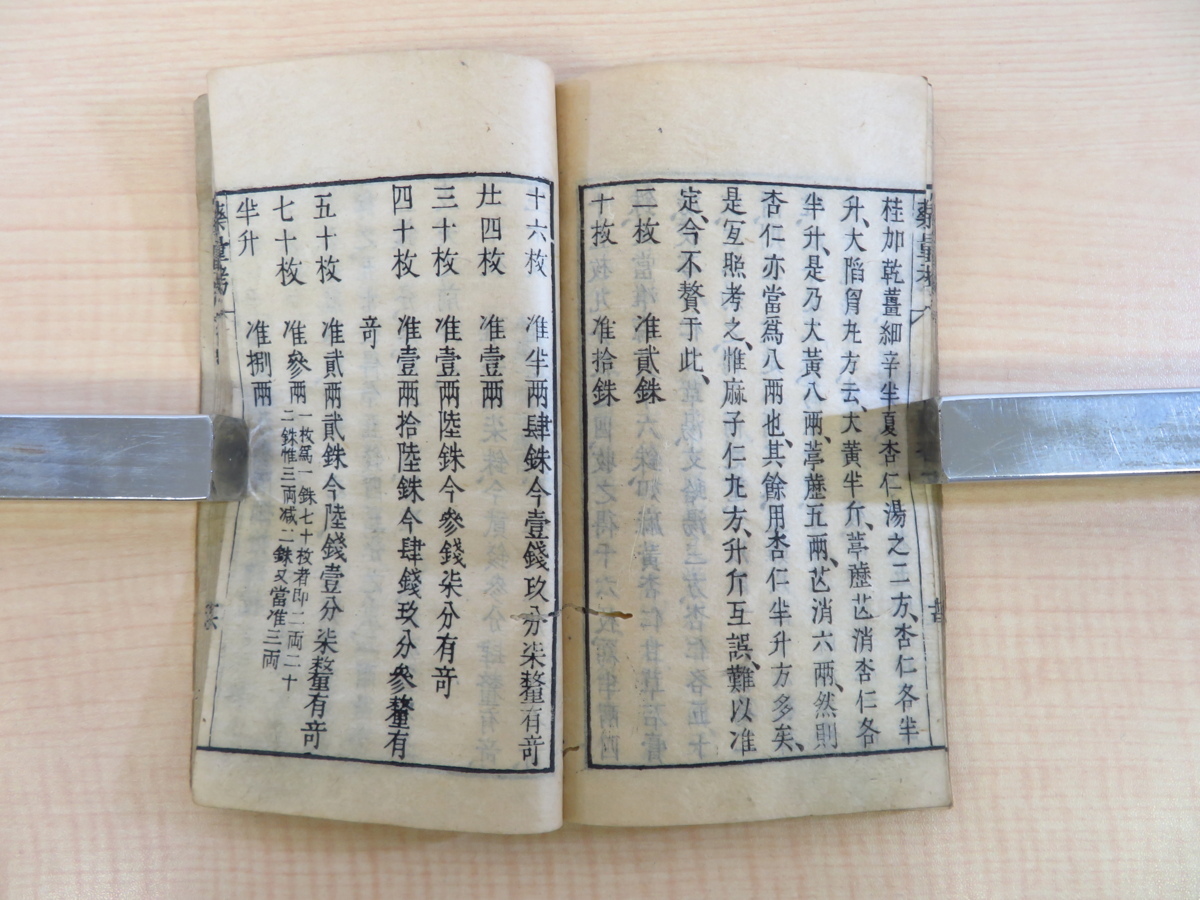 藥量考
桂加乾薑細辛半夏杏仁湯之二方、杏仁各半
升、大陷胷丸方云、大黃半斤、葶藶芒消杏仁各
半升、是乃大黃八兩、葶藶五兩、芒消六兩、然則
杏仁亦當爲八兩也、其餘用杏仁半升方多矣、
是宜照考之、惟麻子仁丸方、升斤互誤、難以准
定、今不贅于此、
二枚 准貳銖
十枚 准拾銖
十六枚 准半兩肆銖今壹錢玖分柒釐有竒
廿四枚 准壹兩
三十枚 准壹兩陸銖今參錢柒分有竒
四十枚 准壹兩拾陸銖今肆錢玖分參釐有
竒
五十枚 准貳兩貳銖今陸錢壹分柒釐有竒
七十枚 准參兩 一枚爲一銖七十枚者即二兩二十
二銖惟三兩减二銖又當准三兩
半升 准捌兩